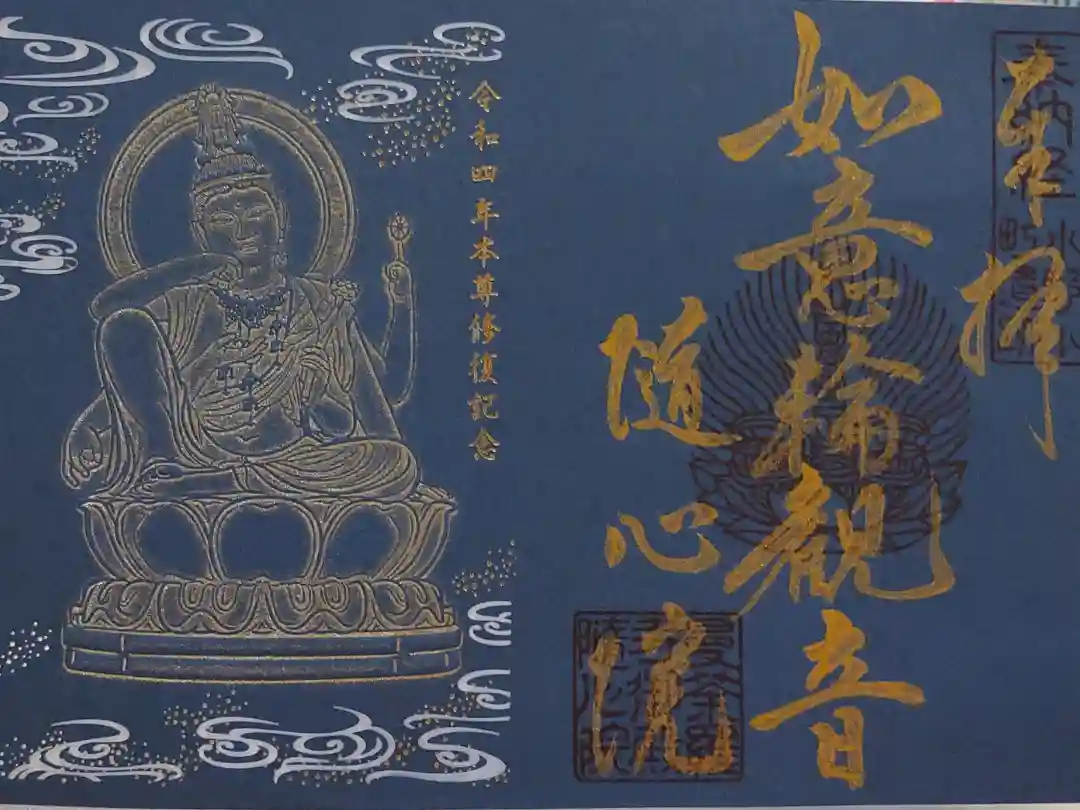 奉拝
如意輪觀音
随心院
奉納経
令和四年本尊修復記念